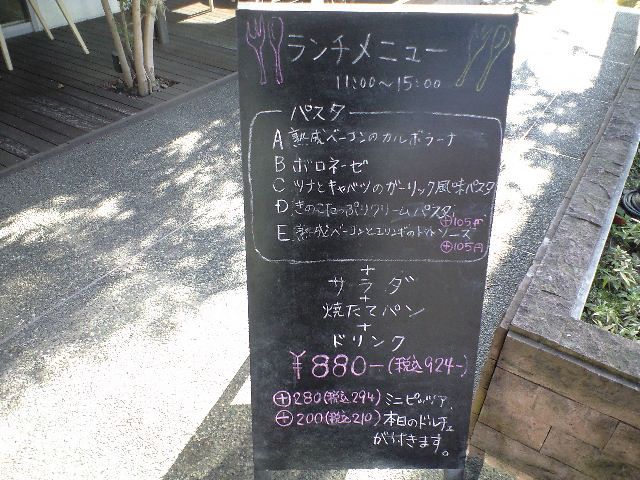 ランチメニュー
11:00～15:00
パスタ
A 熟成ベーコンのカルボラーナ
B ボロネーゼ
C ツナとキャベツのガーリック風味パスタ
D きのこたっぷりクリームパスタ
⊕105円
E 熟成ベーコンとエリンギのトマトソース
⊕105円
+
サラダ
+
焼たてパン
+
ドリンク
¥880-(税込924-)
⊕280(税込294) ミニピッツァ、
⊕200(税込210) 本日のドルチェ
が付きます。